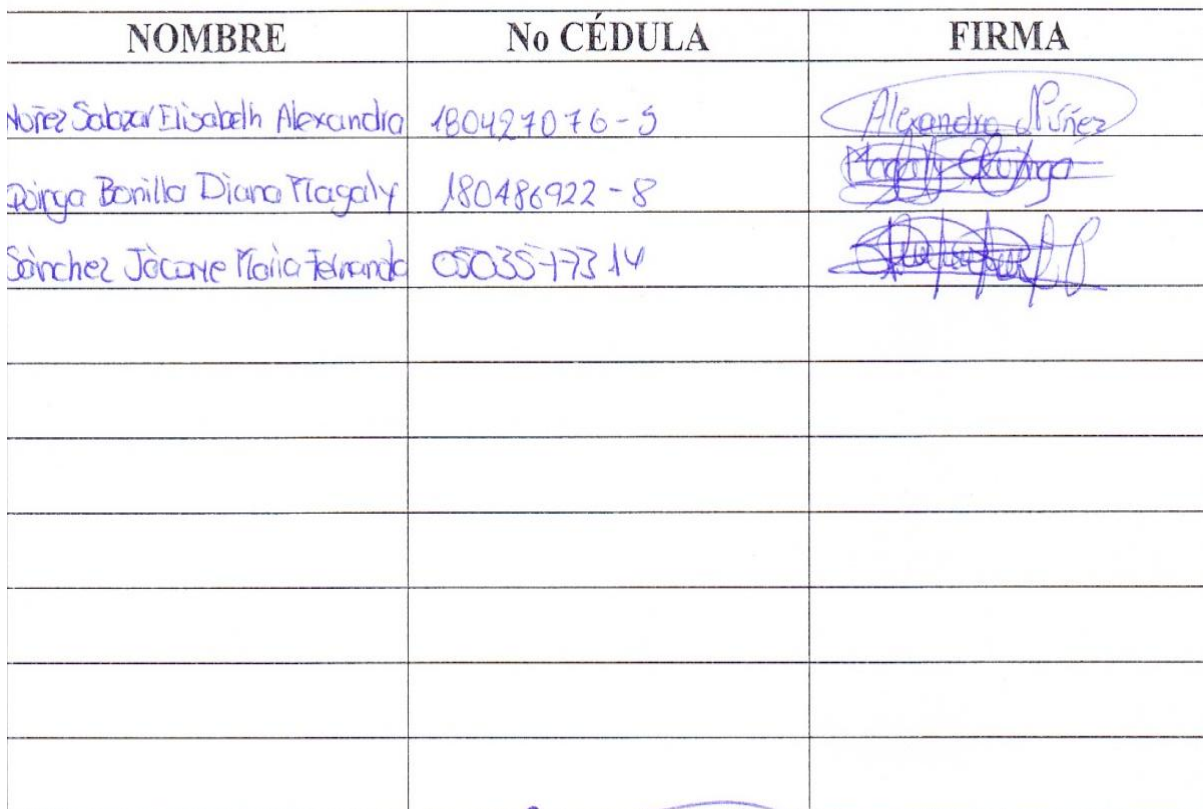 NOMBRE No CÉDULA FIRMA
Nuñez Salazar Elisabeth Alexandra 180427076-5 Alexandra Núñez
Quinga Bonilla Diana Magaly 180486922-8 Magaly Quinga
Sánchez Jácome María Fernanda 0503577314